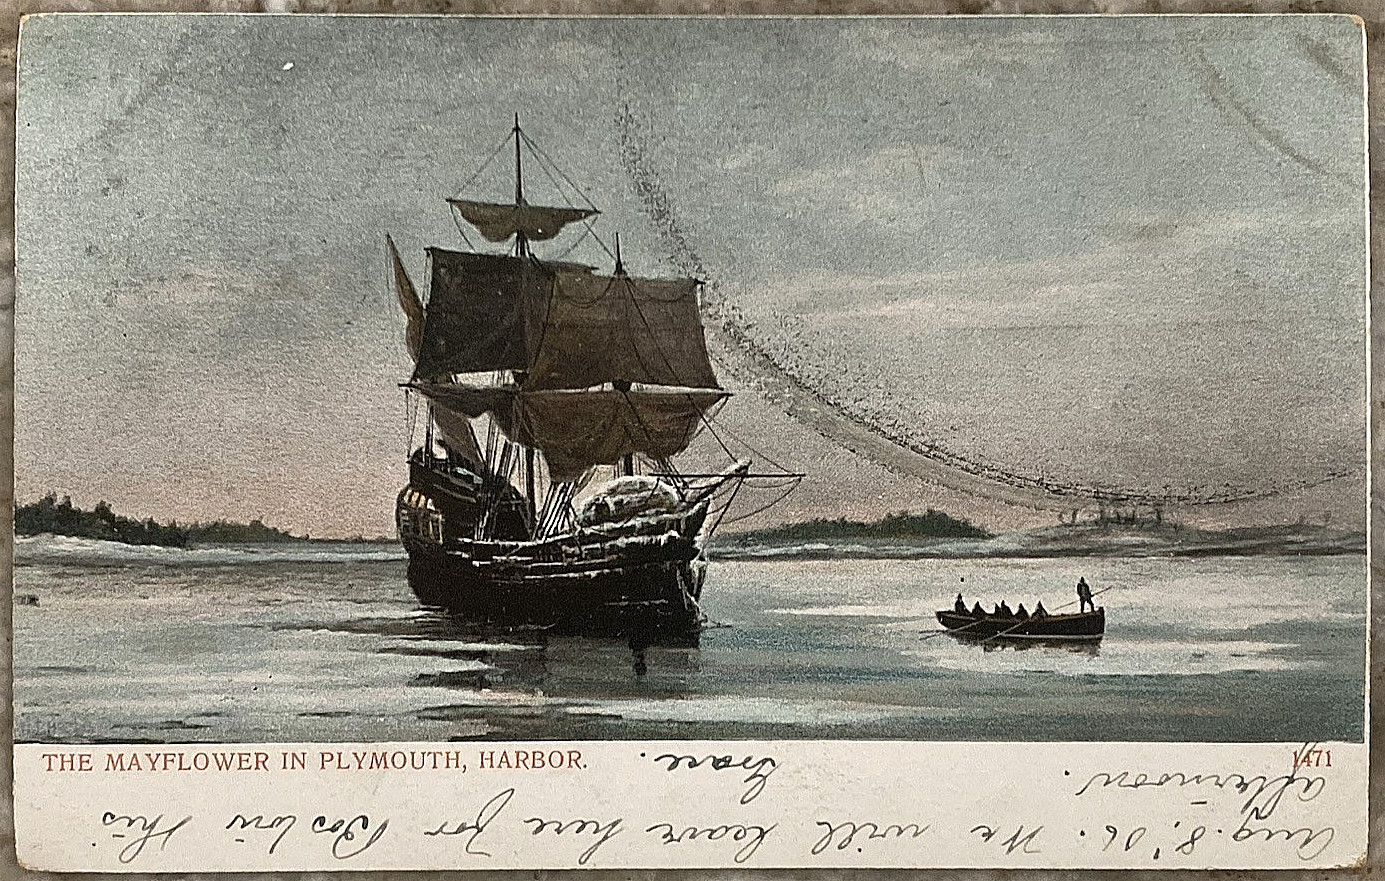 THE MAYFLOWER IN PLYMOUTH, HARBOR.
1471
Aug. 8, '06. We will leave here for Boston this
afternoon.
Grace.